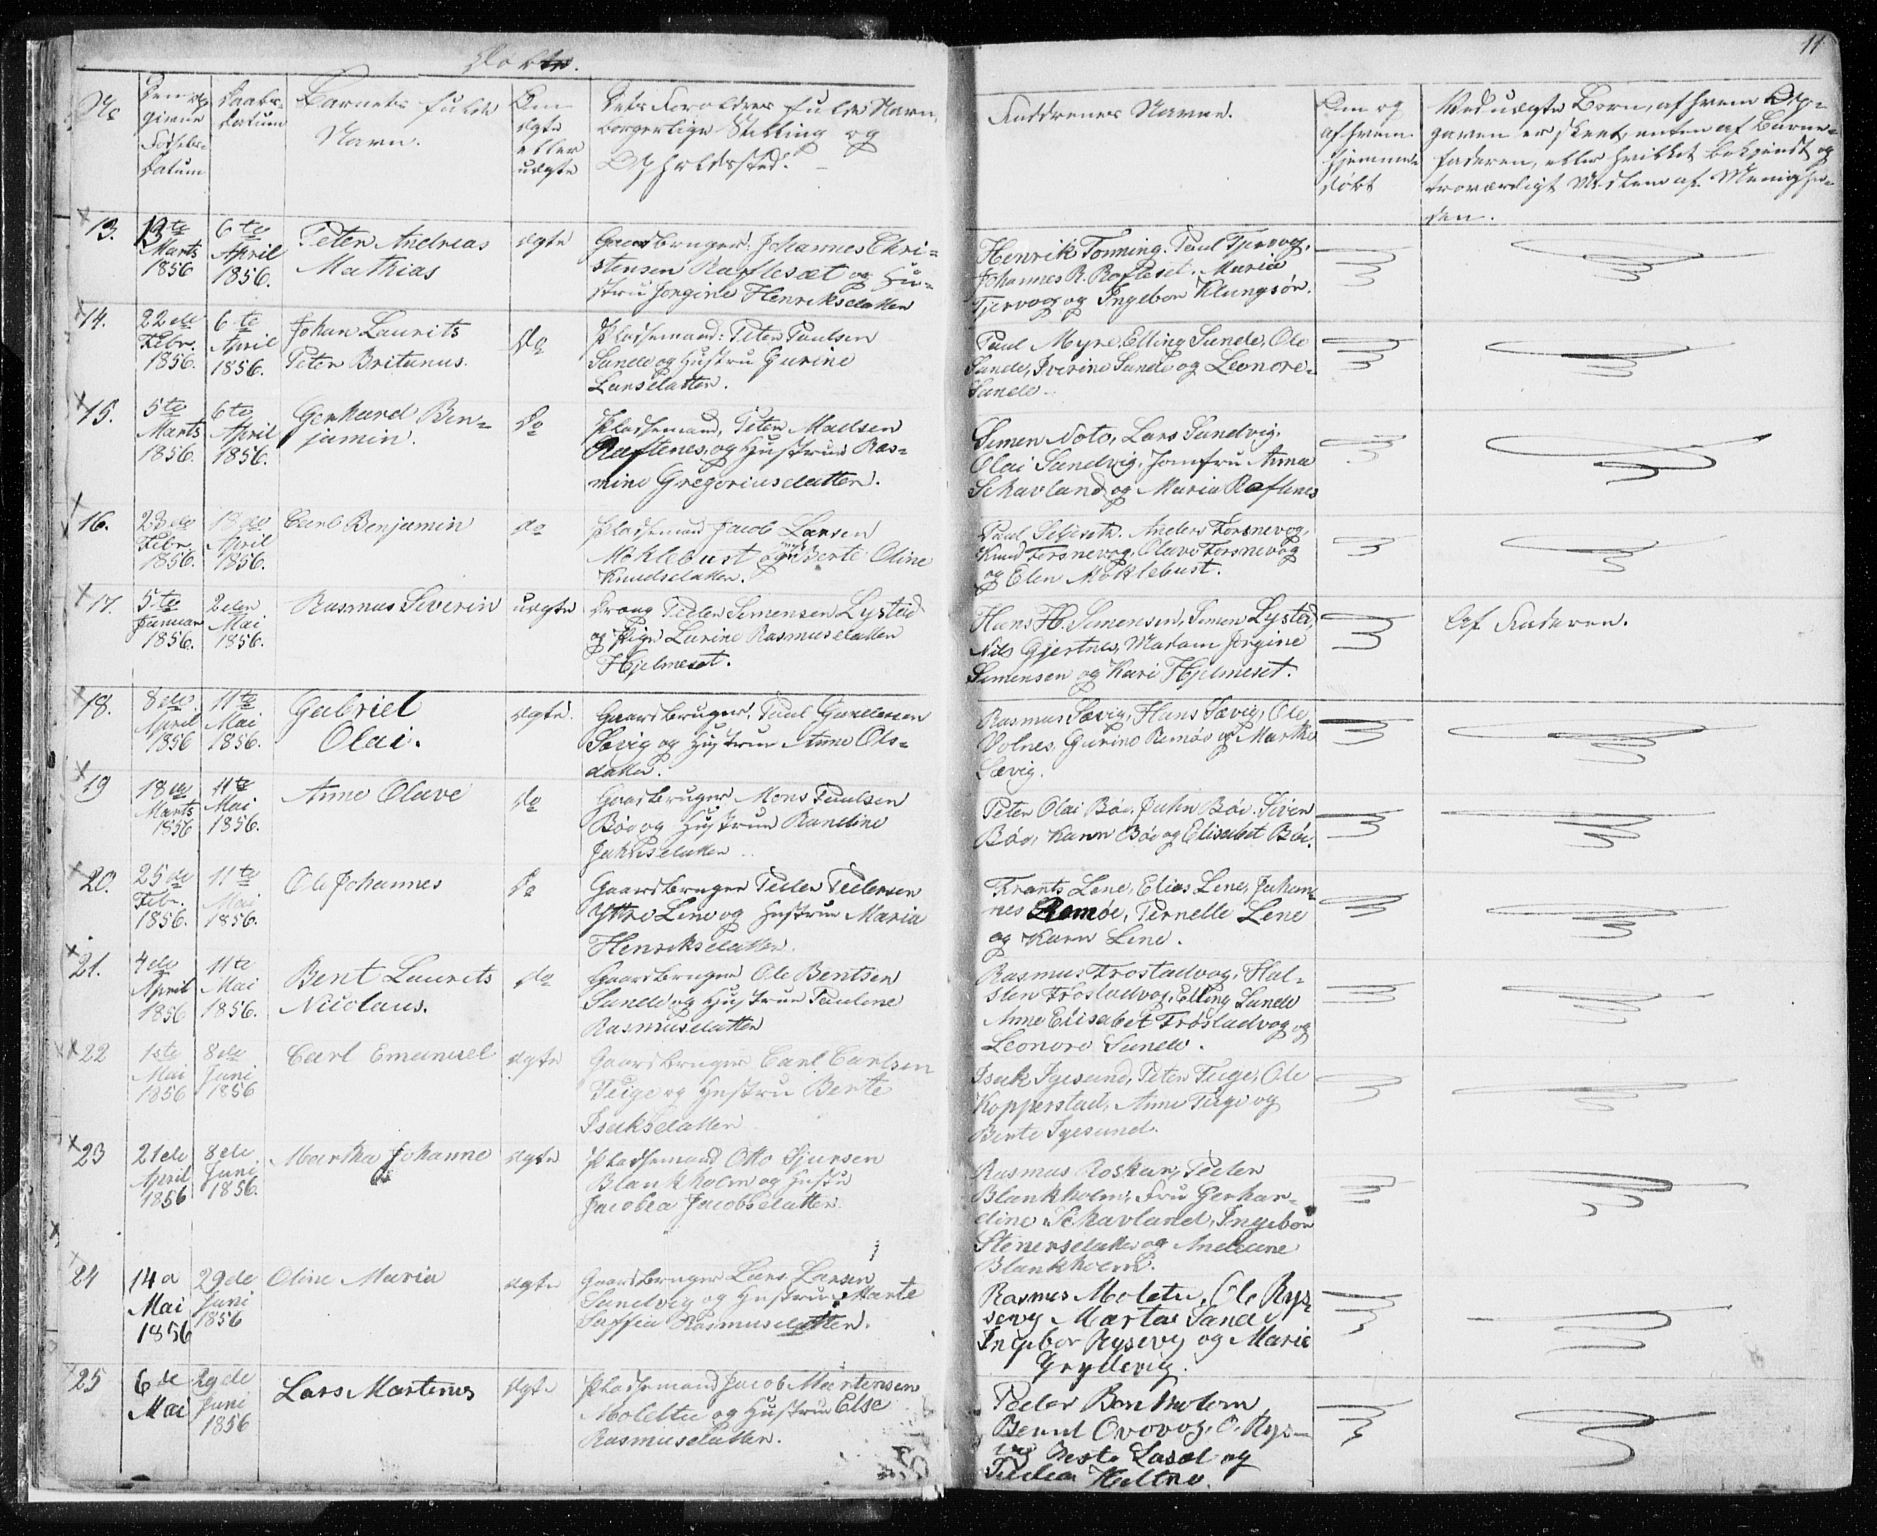 11
Døbte.
No
Den op-
givne
Fødsels-
Datum
Daabs-
datum
Barnets fulde
Navn.
Om
ægte
eller
uægte
Dets Forældres fulde Navn,
borgerlige Stilling og
Opholdssted.
Faddrenes Navne.
Om og
af hvem
hjemme-
døbt
Ved uægte Børn, af hvem Op-
gaven er skeet, enten af Barne-
faderen, eller hvilket bekjendt og
troværdigt Medlem af Menighe-
den.
13.
13te
Marts
1856
6te
April
1856.
Peter Andreas
Mathias
ægte
Gaardbruger Johannes Chri-
stensen Raftesæt og Hu-
stru Jorgine Henriksdatter
Henrik Tonning. Paul Tjervog,
Johannes R. Rafteset. Maria
Tjervog og Ingebor Klungsør.
14.
22de
Febr.
1856.
6te
April
1856.
Johan Laurits
Peter Britanus.
do
Pladsemand: Peter Paulsen
Sande og Hustru Gurine
Larsdatter.
Paul Myre, Elling Sande, Ole
Sande, Iverine Sande og Leonore
Sande.
15.
5te
Marts
1856.
6te
April
1856.
Gerhard Ben-
jamin.
do
Pladsemand, Peter Madsen
Raftenes, og Hustrue Ras-
mine Gregoriusdatter.
Simen Noto, Lars Sandvig,
Olai Sandvig, Jomfru Anna
Schavland og Maria Raftenes
16.
23de
Febr.
1856.
13de
April
1856.
Carl Benjamin
do
Pladsemand Jacob Larsen
Møklebust og Berte Oline
Knudsdatter.
Paul Anders Torsnevog,
Knud Torsnevog, Olave Torsnevog
og Elen Møklebust.
17.
5te
Januar
1856.
2den
Mai
1856.
Rasmus Severin
uægte
Dreng Peder Simensen Lystad
og Pige Larine Rasmusdatter
Hjelmeset.
Hans H. Simensen, Simen Lystad,
Nils Gjertnes, Madam Jorgine
Simensen og Kari Hjelmeset.
Af Faderen.
18.
8de
April
1856
11te
Mai
1856.
Gabriel
Olai.
ægte.
Gaardbruger, Paul Gundersen
Sævig og Hustrue Anne Ols-
datter.
Rasmus Sævig, Hans Sævig, Ole
Volnes, Gurine Remøe og Marthe
Sævig.
19
18de
Marts
1856
11te
Mai
1856.
Anne Olave
do
Gaardbruger Mons Paulsen
Bøe og Hustrue Randine
Jahnsdatter
Peter Olai Bøe, Jahn Bøe, Siver
Bøe, Karn Bøe og Elisabet Bøe.
20.
25de
Febr.
1856.
11te
Mai
1856.
Ole Johannes
do
Gaardbruger Peder Pedersen
Yttre Line og Hustrue Maria
Henriksdatter.
Frants Lene, Elias Lene, Johan-
nes Remøe, Pernelle Lene
og Karn Lene.
21.
4de
April
1856
11te
Mai
1856.
Bent Laurits
Nicolaus.
do
Gaardbruger Ole Bentsen
Sande og Hustrue Pauline
Rasmusdatter
Rasmus Frøstadvog, Hal-
sten Frøstadvog, Elling Sande
Anne Elisabet Frøstadvog og
Leonore Sande.
22
1ste
Mai
1856
8de
Juni
1856
Carl Emanuel
ægte
Gaardbruger Carl Carlsen
Teige og Hustru Berte
Isaksdatter
Isak Igesund, Peter Teige, Ole
Kopperstad, Anne Teige og
Berte Igesund.
23
21de
April
1856
8de
Juni
1856.
Martha Johanne
ægte
Pladsemand Otto Sjursen
Blankholm og Hustru
Jacobea Jacobsdatter
Rasmus Roskar, Peder
Blankholm, Fru Gerhar-
dine Schavland, Ingebor
Stenersdatter og Andrine
Blankholm.
24
14d
Mai
1856
29de
Juni
1856
Oline Maria
ægte
Gaardbruger Lars Larsen
Sandvig og Hustrue Marte
Saffia Rasmusdatter.
Rasmus Moletu, Ole Rys-
sevg Martae Sande,
Ingebor Rysevg og Marie
Gryttevig.
25
6de
Mai
29de
Juni
1856
Lars Martinus
ægte
Pladsemand Jacob Martensen
Moletu og Hustrue Else
Rasmusdatter.
Peder
Bernt Ovovog, O. Ryse-
og
Peder Hatne.